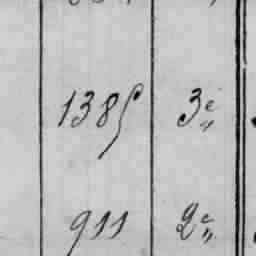 1385 3e„
911 2e„